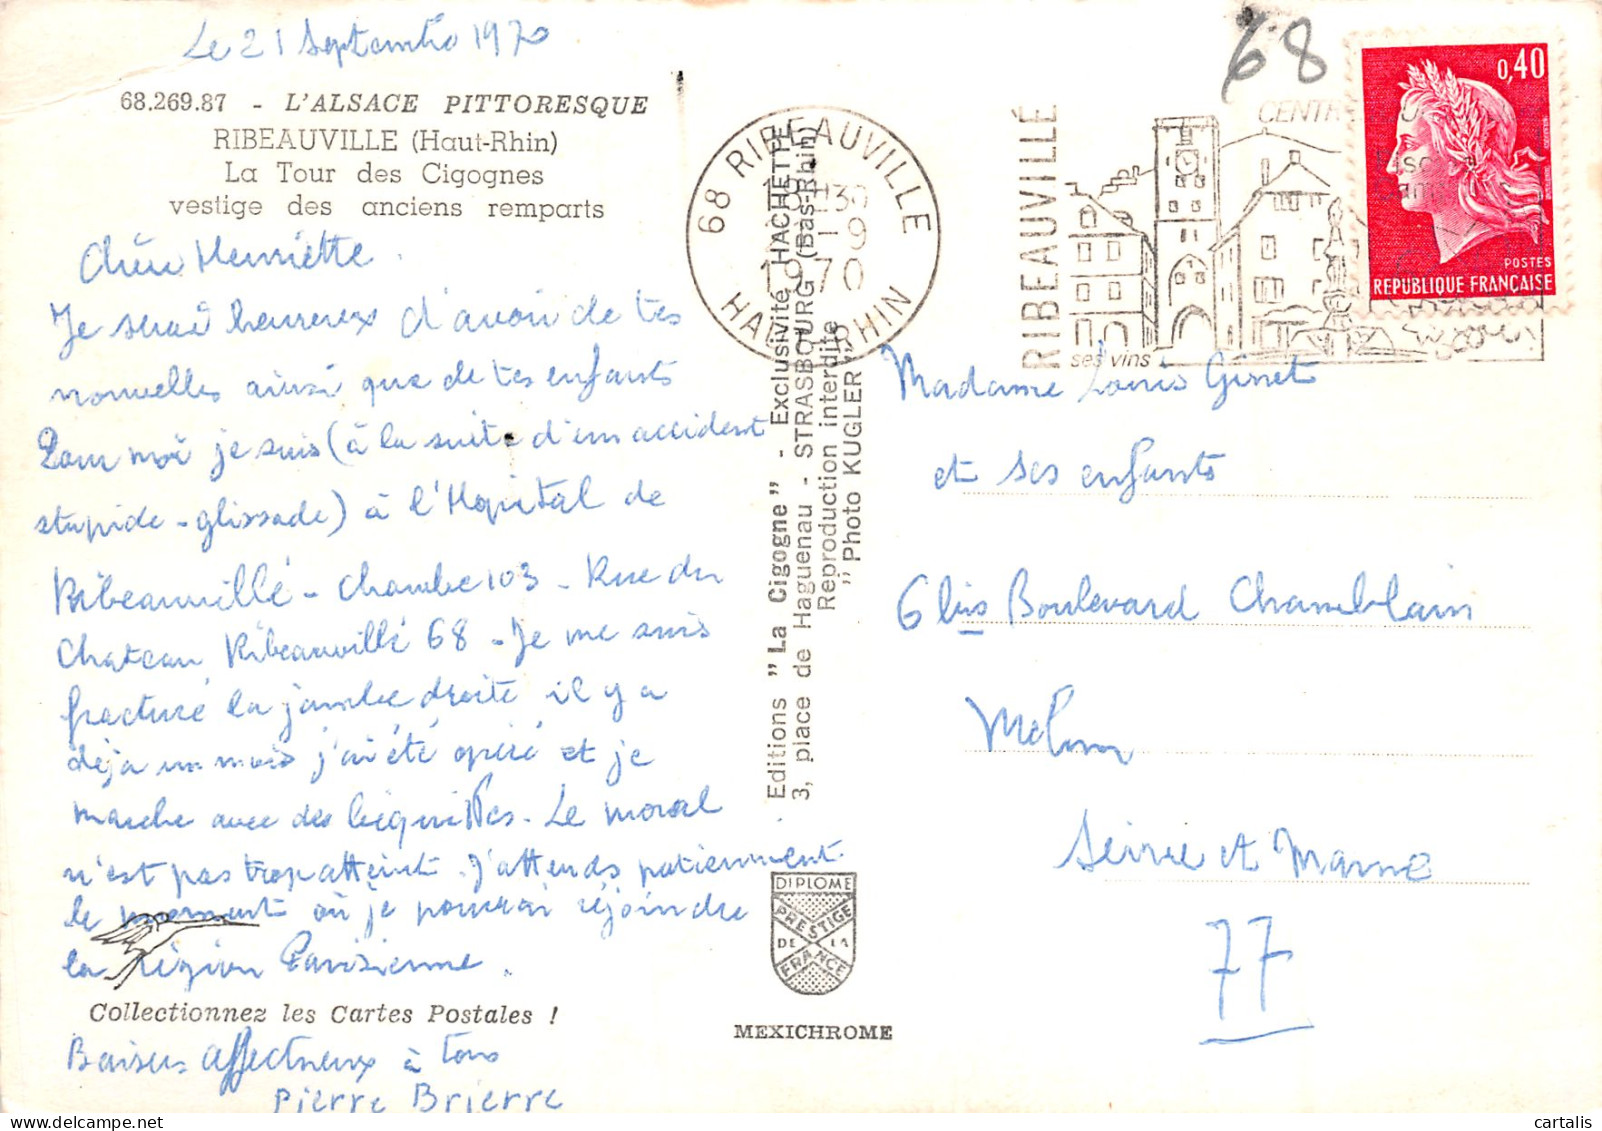 Le 21 Septembre 1970
68.269.87 - L'ALSACE PITTORESQUE
RIBEAUVILLE (Haut-Rhin)
La Tour des Cigognes
vestige des anciens remparts
Chère Henriette.
Je serai heureux d'avoir de tes
nouvelles ainsi que de tes enfants
Pour moi je suis (à la suite d'un accident
stupide - glissade) à l'Hopital de
Ribeauvillé - Chambre 103 - Rue du
Chateau Ribeauvillé 68 - Je me suis
fracturé la jambe droite il y a
déjà un mois j'ai été opéré et je
marche avec des béquilles. Le moral
n'est pas trop atteint. J'attends patiemment
le moment où je pourrai rejoindre
la région Parisienne.
Collectionnez les Cartes Postales !
Baisers affectueux à tous
Pierre Brierre
Editions "La Cigogne" - Exclusivité HACHETTE
3, place de Haguenau - STRASBOURG (Bas-Rhin)
Reproduction interdite
"Photo KUGLER"
DIPLOME
PRESTIGE
DE LA
FRANCE
MEXICHROME
68 RIBEAUVILLE
18H30
1970
HAUT RHIN
RIBEAUVILLÉ
ses vins
68
0,40
POSTES
REPUBLIQUE FRANÇAISE
Madame Louis Ginet
et ses enfants
6 bis Boulevard Chamblain
Melun
Seine et Marne
77
cartalis | delcampe.net